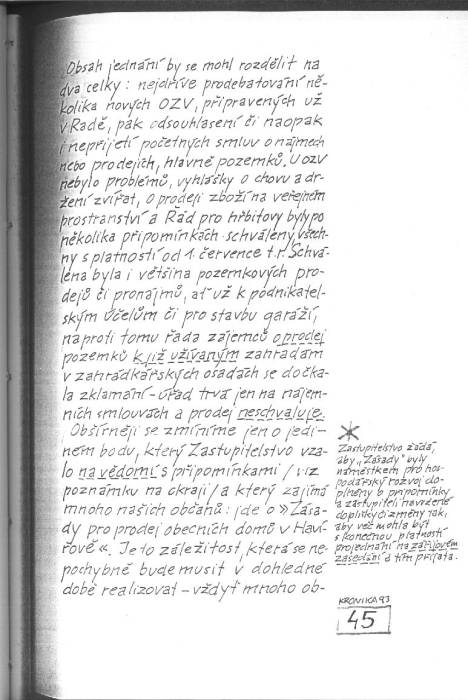 Obsah jednání by se mohl rozdělit na
dva celky: nejdříve prodebatování ně-
kolika nových OZV, připravených už
v Radě, pak odsouhlasení či naopak
i nepřijetí početných smluv o nájmech
nebo prodejích, hlavně pozemků. U OZV
nebylo problémů, vyhlášky o chovu a dr-
žení zvířat, o prodeji zboží na veřejném
prostranství a Řád pro hřbitovy byly po
několika připomínkách schváleny všech-
ny s platností od 1. července t.r. Schvá-
lena byla i většina pozemkových pro-
dejů či pronájmů, ať už k podnikatel-
ským účelům či pro stavbu garáží,
naproti tomu řada zájemců o prodej
pozemků k již užívaným zahradám
v zahrádkářských osadách se dočka-
la zklamání - úřad trvá jen na nájem-
ních smlouvách a prodej neschvaluje.
Obšírněji se zmíníme jen o jedi-
ném bodu, který Zastupitelstvo vza-
lo na vědomí s připomínkami /viz
poznámku na okraji/ a který zajímá
mnoho našich občanů: jde o »Zása-
dy pro prodej obecních domů v Haví-
řově«. Je to záležitost, která se ne-
pochybně bude musit v dohledné
době realizovat - vždyť mnoho ob-
Zastupitelstvo žádá,
aby „Zásady" byly
náměstkem pro hos-
podářský rozvoj do-
plněny o připomínky
a zastupiteli navržené
doplňky či změny tak,
aby věc mohla být
s konečnou platností
projednána na zářijovém
zasedání a tím přijata.
KRONIKA 93
45